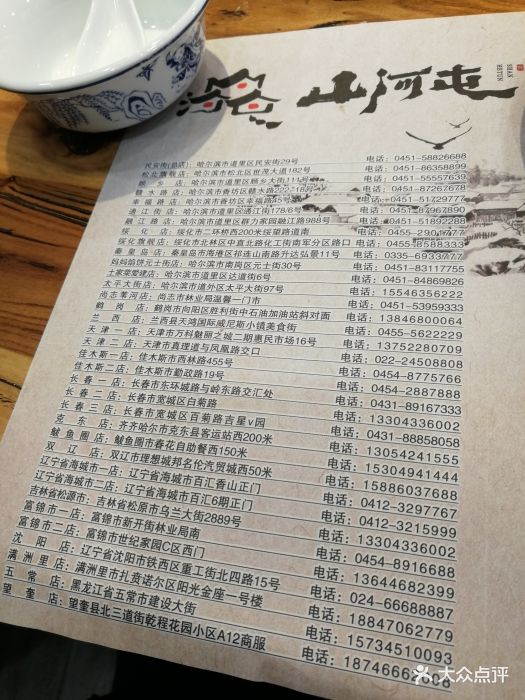 山河屯
SHAN
HETUN
民安街(总店)：哈尔滨市道里区民安街29号 电话：0451-58826688
松北旗舰店：哈尔滨市松北区世茂大道182号 电话：0451-86358899
顾乡店：哈尔滨市道里区顾乡大街111号 电话：0451-55557639
赣水路店：哈尔滨市香坊区赣水路222-18号 电话：0451-87267678
幸福路店：哈尔滨市香坊区幸福路45号 电话：0451-51729777
通江街店：哈尔滨市道里区通江街178/6号 电话：0451-84967890
融江路店：哈尔滨市道里区群力家园融江路988号 电话：0451-51892288
绥化店：绥化市二环桥西200米绥望路道南 电话：0455-2901777
绥化旗舰店：绥化市北林区中直北路化工街南军分区路口 电话：0455-8588333
秦皇岛店：秦皇岛市海港区祁连山南路翔升达弘景11号 电话：0335-6933777
妈妈馅饼元士街店：哈尔滨市南岗区元士街30号 电话：0451-83117755
土家菜爱建店：哈尔滨市道里区达道街6号 电话：0451-84869826
太平大街店：哈尔滨市道外区太平大街97号 电话：15546356222
尚志苇河店：尚志市林业局温馨一门市 电话：0451-53959333
鹤岗店：鹤岗市向阳区胜利街中石油加油站斜对面 电话：13846800064
兰西店：兰西县天鸿国际威尼斯小镇美食街 电话：0455-5622229
天津一店：天津市万科魅丽之城二期惠民市场16号 电话：13752280709
天津二店：天津市真理道与凤凰路交口 电话：022-24508808
佳木斯一店：佳木斯市西林路455号 电话：0454-8775766
佳木斯二店：佳木斯市勤政路19号 电话：0454-2887888
长春一店：长春市东环城路与岭东路交汇处 电话：0431-89167333
长春二店：长春市宽城区白菊路 电话：13304336002
长春三店：长春市宽城区百菊路吉星v园 电话：0431-88858058
克东店：齐齐哈尔市克东县客运站西200米 电话：13054241555
鲅鱼圈店：鲅鱼圈市春花自助餐西150米 电话：15304941444
双辽店：双辽市理想城邦名伦汽贸城西50米 电话：15886037688
辽宁省海城市一店：辽宁省海城市百汇香山正门 电话：0412-3297767
辽宁省海城市二店：辽宁省海城市百汇6期正门 电话：0412-3215999
吉林省松源市：吉林省松原市乌兰大街2889号 电话：13304336002
富锦市一店：富锦市新开街林业局南 电话：0454-8916688
富锦市二店：富锦市世纪家园C区西门 电话：13644682399
沈阳店：辽宁省沈阳市铁西区重工街北四路15号 电话：024-66688887
满洲里店：满洲里市扎赉诺尔区阳光金座一号楼 电话：18847062779
五常店：黑龙江省五常市建设大街 电话：15734510093
望奎店：望奎县北三道街乾程花园小区A12商服 电话：187466
大众点评